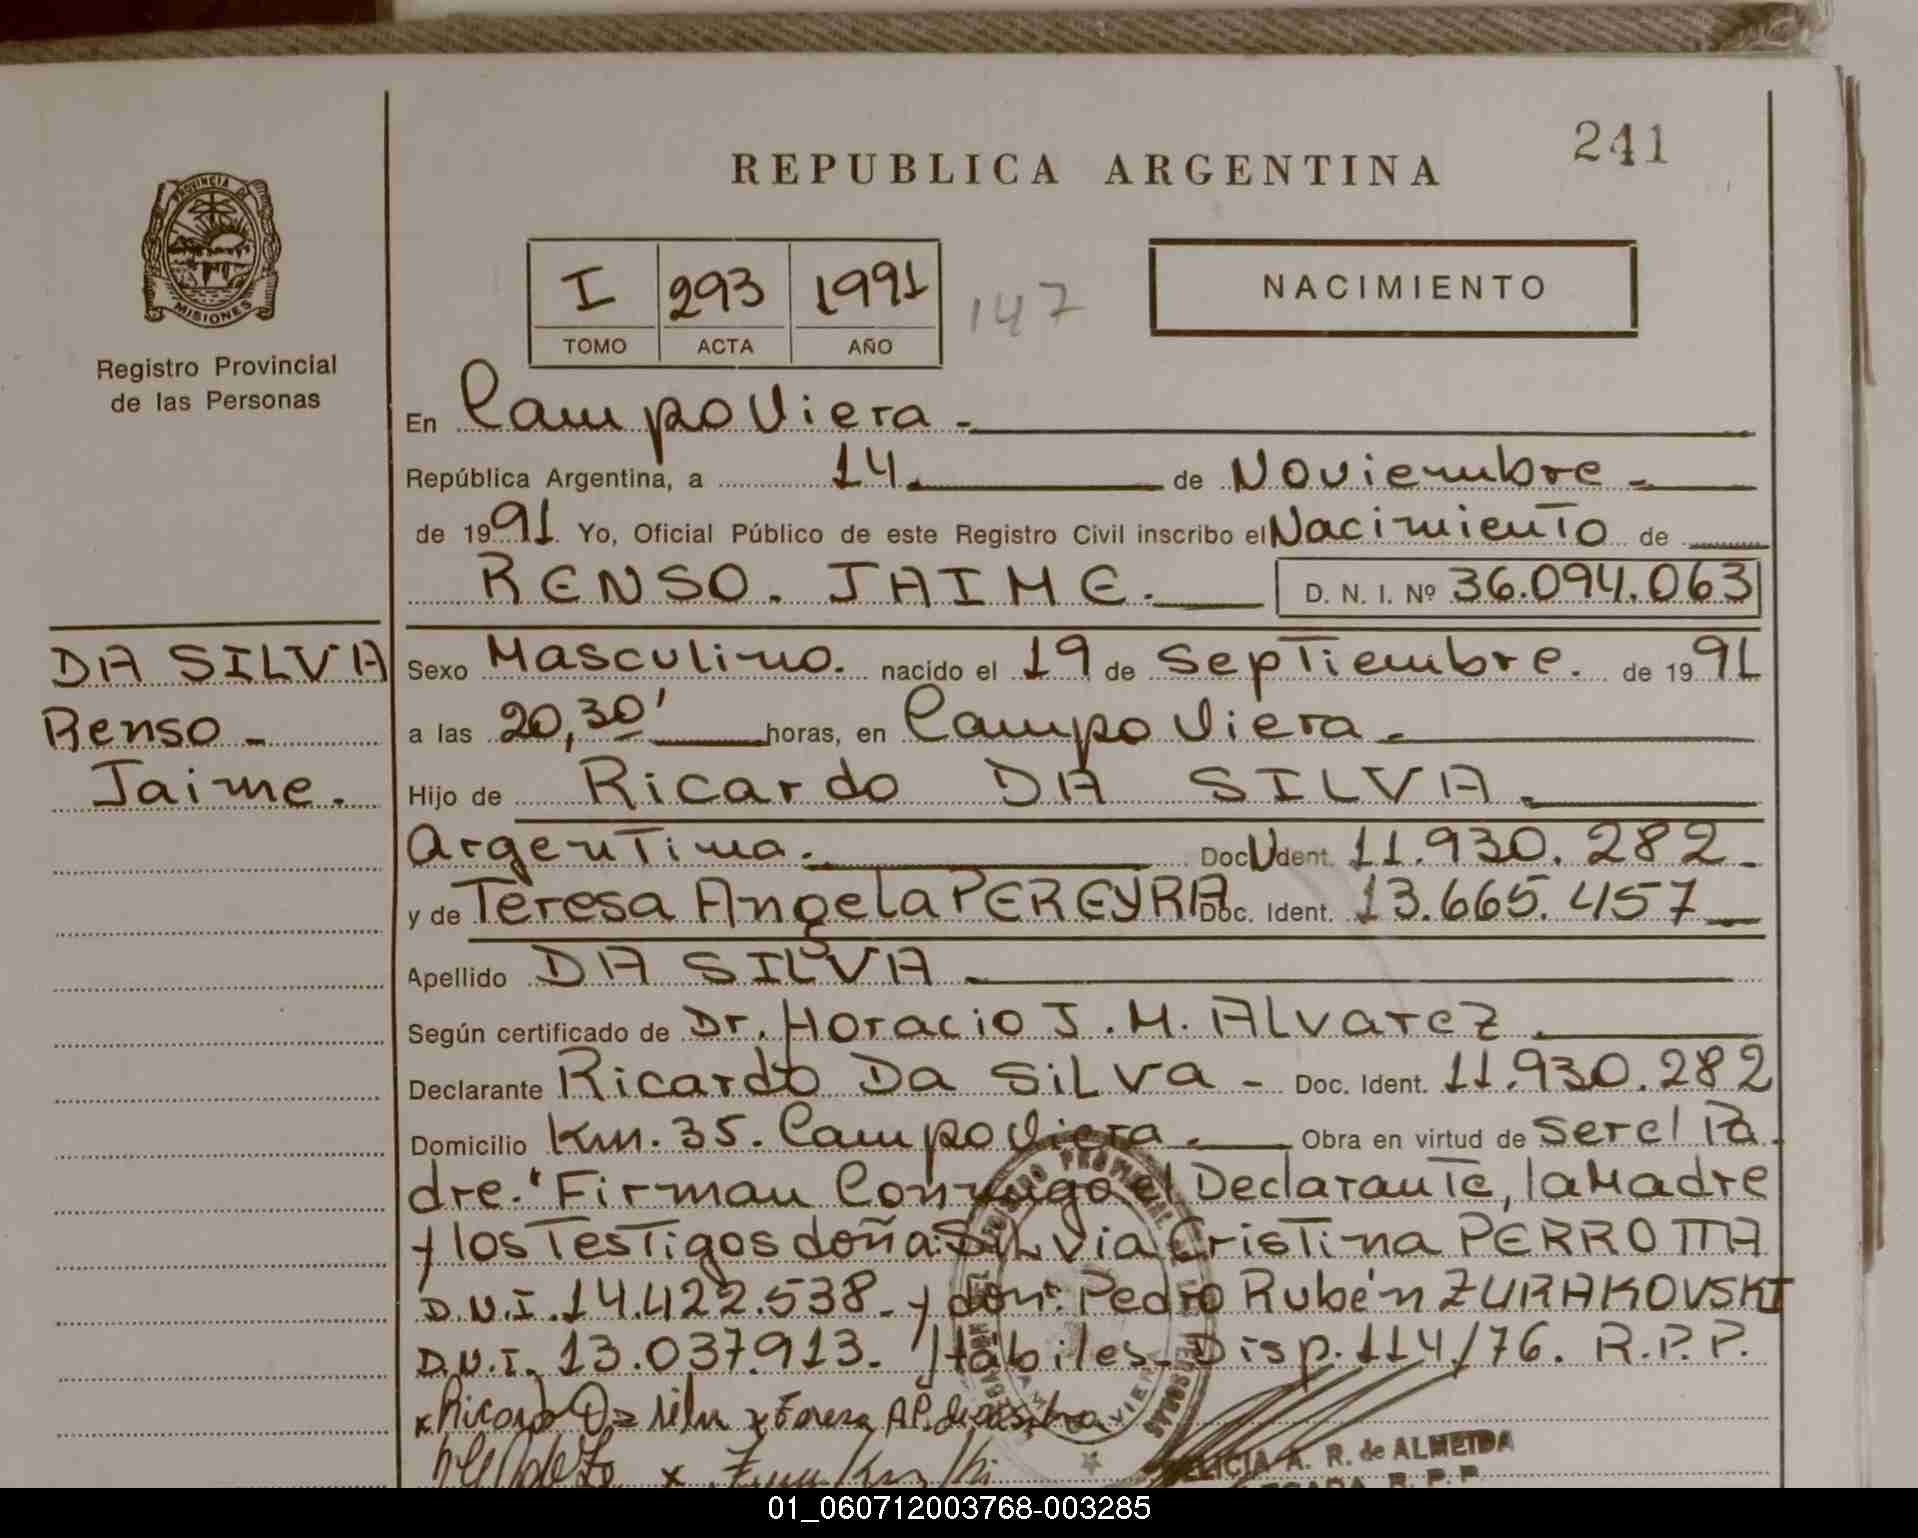 241
REPUBLICA ARGENTINA
PROVINCIA DE
MISIONES
Registro Provincial
de las Personas
I 293 1991
TOMO ACTA AÑO
147
NACIMIENTO
En Campo Viera.
República Argentina, a 14. de Noviembre.
de 1991. Yo, Oficial Público de este Registro Civil inscribo el Nacimiento de
RENSO. JAIME. D. N. I. Nº 36.094.063
DA SILVA
Renso
Jaime.
Sexo Masculino. nacido el 19 de Septiembre. de 1991
a las 20,30' horas, en Campo Viera.
Hijo de Ricardo DA SILVA.
Argentina. Doc. Ident. 11.930.282
y de Teresa Angela PEREYRA Doc. Ident. 13.665.457
Apellido DA SILVA
Según certificado de Dr. Horacio J. M. Alvarez
Declarante Ricardo Da Silva - Doc. Ident. 11.930.282
Domicilio Km. 35. Campo Viera. Obra en virtud de ser el Pa
dre. Firman Conmigo el Declarante, la Madre
y los Testigos doña: Silvia Cristina PERROTTA
D.N.I. 14.422.538 - y don: Pedro Rubén ZURAKOVSKI
D.N.I. 13.037.913. Hábiles. Disp. 114/76. R.P.P.
x Ricardo Da Silva x Teresa A.P. de Da Silva
x
FELICIA A. R. de ALMEIDA
R. P. P.
01_060712003768-003285